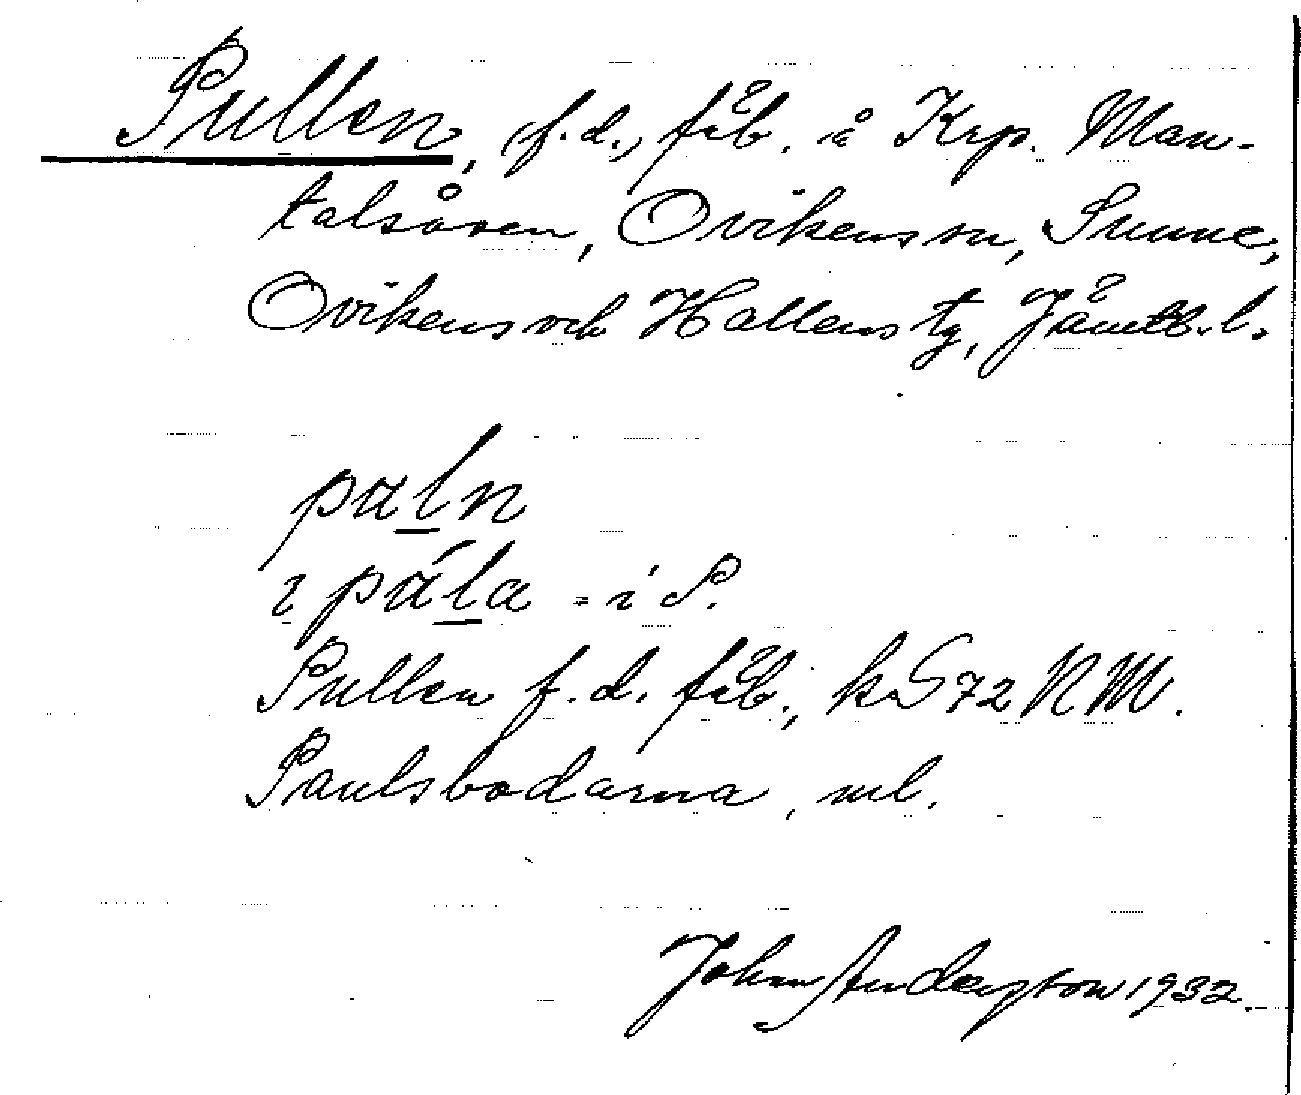 Pullen, f.d., fäb. å Krp. Man-
talsåsen, Ovikens sn, Sunne,
Ovikens och Hallens tg, Jämtl. l.
paln
i pála = i P.
Pullen f.d. fäb., k S72 NM.
Paulsbodarna, ul.
John Anderson 1932.